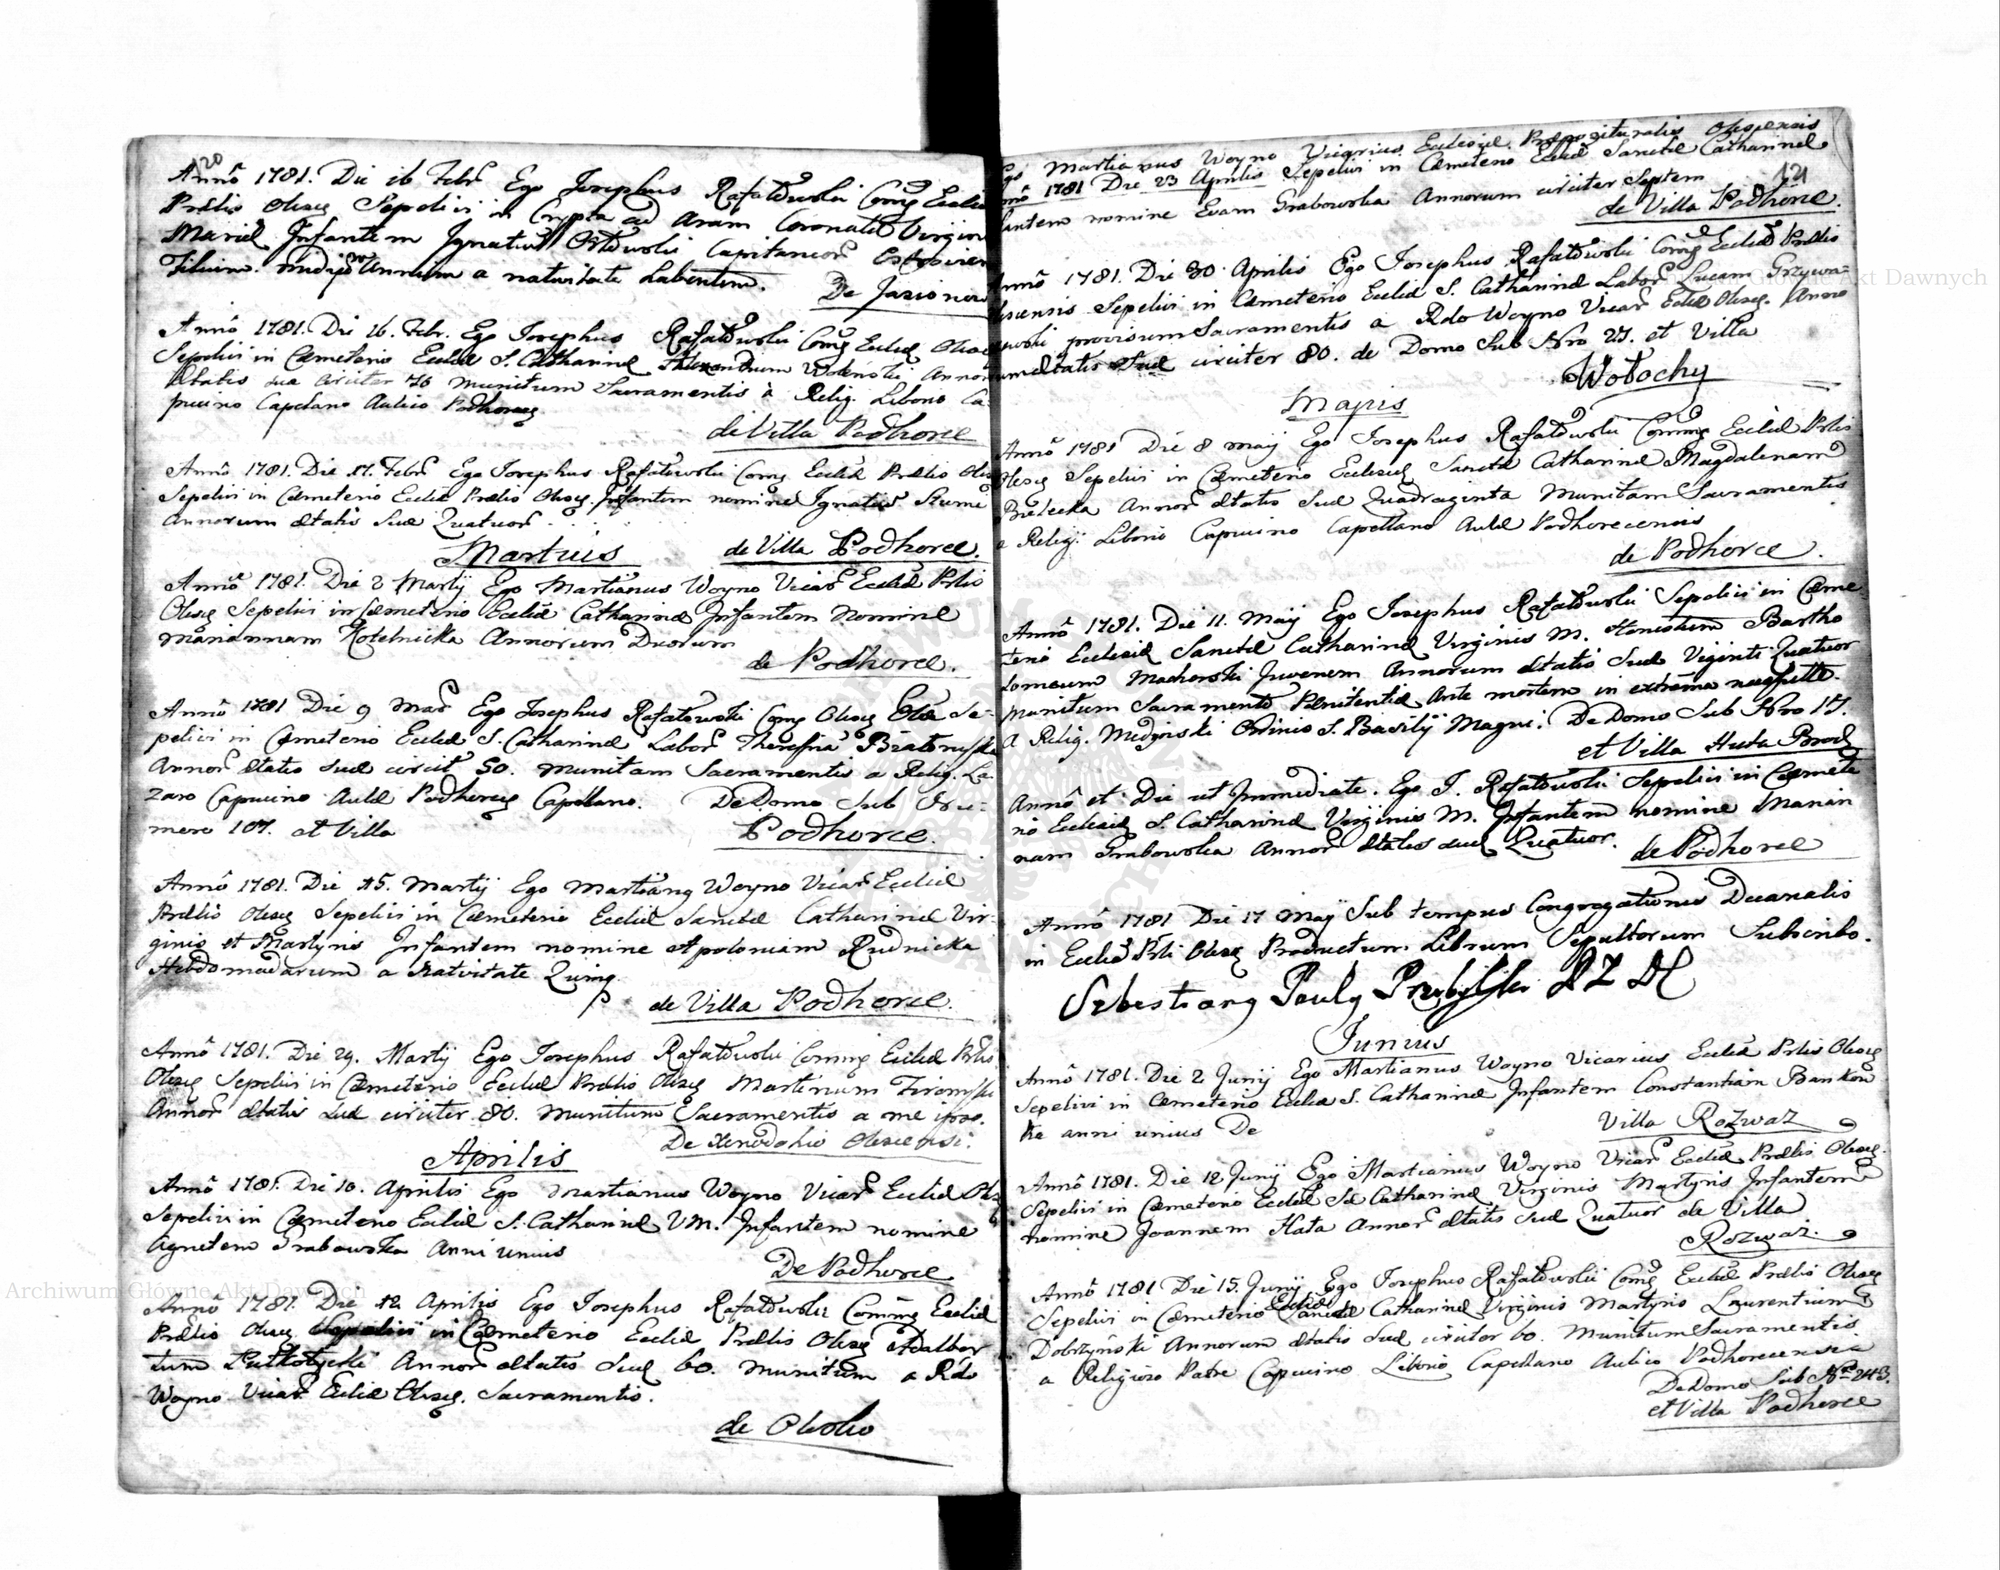 120
Annô 1781. Die 16 Febr Ego Josephus Rafałowski Comg Eccliæ
Prælis Olesg Sepelivi in Crypta ad Aram Coronatæ Virginis
Mariæ Infantem Ignatium Capitaneor
Filium. Annum a nativitate Labentem. De
Annô 1781. Die 16. Febr. Ego Josephus Rafałowski Comg Eccliæ Olesg
Sepelivi in Cæmeterio Eccliæ S. Catharinæ Annor
Ætatis suæ circiter 70 munitum Sacramentis à Relig. Liborio Ca-
pucino Capelano Aulico Podhorecg
de Villa Podhorce
Annô 1781. Die 17. Febr Ego Josephus Rafałowski Comg Eccliæ Prælis Olesg
Sepelivi in Cæmeterio Eccliæ Prælis Olesg. Infantem nomine Ignatiu
Annorum ætatis suæ Quatuor.
Martius de Villa Podhorce.
Annô 1781. Die 2 Martij Ego Martianus Woyno Vicar Eccliæ Prlis
Olesg Sepelivi in Cæmeterio Eccliæ Catharinæ Infantem Nomine
Mariannam Kotelnicka Annorum Duorum
de Podhorce.
Annô 1781 Die 9 Mar Ego Josephus Rafałowski Comg Olesg Se-
pelivi in Cæmeterio Eccliæ S. Catharinæ Labor
Annor ætatis suæ circit 50. munitam Sacramentis a Relig. La-
zaro Capucino Aulæ Podhorecg Capellano. De Domo Sub Nu-
mero 107. et Villa Podhorce.
Annô 1781. Die 15. Martij Ego Martiang Woyno Vicar Eccliæ
Prælis Olesg Sepelivi in Cæmeterio Eccliæ Sanctæ Catharinæ Vir-
ginis et Martyris Infantem nomine Apoloniam Rudnicka
Hebdomadarum a Nativitate Quinq
de Villa Podhorce.
Annô 1781. Die 29. Martij Ego Josephus Rafałowski Coming Eccliæ Prlis
Olesg Sepelivi in Cæmeterio Eccliæ Prælis Olesg Martinum
Annor ætatis suæ circiter 80. munitum Sacramentis a me ipso.
De Xenodohio Olescensi.
Aprilis
Annô 1781. Die 10. Aprilis Ego Martianus Woyno Vicar Eccliæ Oles
Sepelivi in Cæmeterio Eccliæ S. Catharinæ V.M. Infantem nomine
Agnetem Grabowska Anni unius
De Podhorce
Annô 1781. Die 12 Aprilis Ego Josephus Rafałowski Coming Eccliæ
Prælis Olesg Sepelivi in Cæmeterio Eccliæ Prælis Olesg Adalber
tum Annor ætatis suæ 60. munitum a Rdo
Woyno Vicar Eccliæ Olesg. Sacramentis.
de Olesko
121
Ego Martianus Woyno Vicarius Ecclesiæ Præposituralis Olescensis
1781 Die 23 Aprilis Sepelivi in Cæmeterio Eccliæ Sanctæ Catharinæ
fantem nomine Evam Grabowska Annorum circiter Septem
de Villa Podhorce.
Annô 1781. Die 30. Aprilis Ego Josephus Rafałowski Comg Eccliæ Prælis
Sepelivi in Cæmeterio Eccliæ S. Catharinæ Labor Lucam Grzywa-
provisum Sacramentis a Rdo Woyno Vicar Eccliæ Olesg. Annor
um ætatis suæ circiter 80. de Domo Sub Nro 27. et Villa
Wołochy
Majus
Annô 1781 Die 8 Maij Ego Josephus Rafałowski Coming Eccliæ Prlis
Olesg Sepelivi in Cæmeterio Ecclesiæ Sanctæ Catharinæ Magdalenam
Bielecka Annor ætatis suæ Quadraginta Munitam Sacramentis
a Religij Liborio Capucino Capellano Aulæ Podhorecensis
de Podhorce.
Annô 1781. Die 11. Maij Ego Josephus Rafałowski Sepelivi in Cæme-
terio Ecclesiæ Sanctæ Catharinæ Virginis M. Honestum Bartho
lomeum Machorski Juvenem Annorum ætatis suæ Viginti Quatuor
munitum Sacramento Pænitentiæ Ante mortem in extrema necessitte.
A Relig. Ordinis S. Basilij Magni. De Domo Sub Nro 17.
et Villa Huta
Annô et Die ut Immediate. Ego J. Rafałowski Sepelivi in Cæmete
rio Ecclesiæ S. Catharinæ Virginis M. Infantem nomine Marian
nam Grabowska Annor ætatis suæ Quatuor. de Podhorce
Annô 1781 Die 17 Maij Sub tempus Congregationis Decanalis
in Eccliæ Prli Olesg Productum Librum Sepultorum Subscribo.
Sebestiang Pauly
Junius
Annô 1781. Die 2 Junij Ego Martianus Woyno Vicarius Eccliæ Prlis Olesg
Sepelivi in Cæmeterio Eccliæ S. Catharinæ Infantem
anni unius De Villa Rozwaz
Annô 1781. Die 12 Junij Ego Martianus Woyno Vicar Eccliæ Prælis Olesg.
Sepelivi in Cæmeterio Eccliæ Sæ Catharinæ Virginis Martyris Infantem
nomine Joannem Hata Annor ætatis suæ Quatuor de Villa
Rozwaz.
Annô 1781 Die 15. Junij Ego Josephus Rafałowski Comg Eccliæ Prælis Olesg
Sepelivi in Cæmeterio Eccliæ Sanctæ Catharinæ Virginis Martyris Laurentium
Dobrzyński Annorum ætatis suæ circiter 60. Munitum Sacramentis
a Religioso Patre Capucino Liborio Capellano Aulico Podhorecensis
De Domo Sub Nro 243.
et Villa Podhorce
Archiwum Główne Akt Dawnych
Główne Akt Dawnych